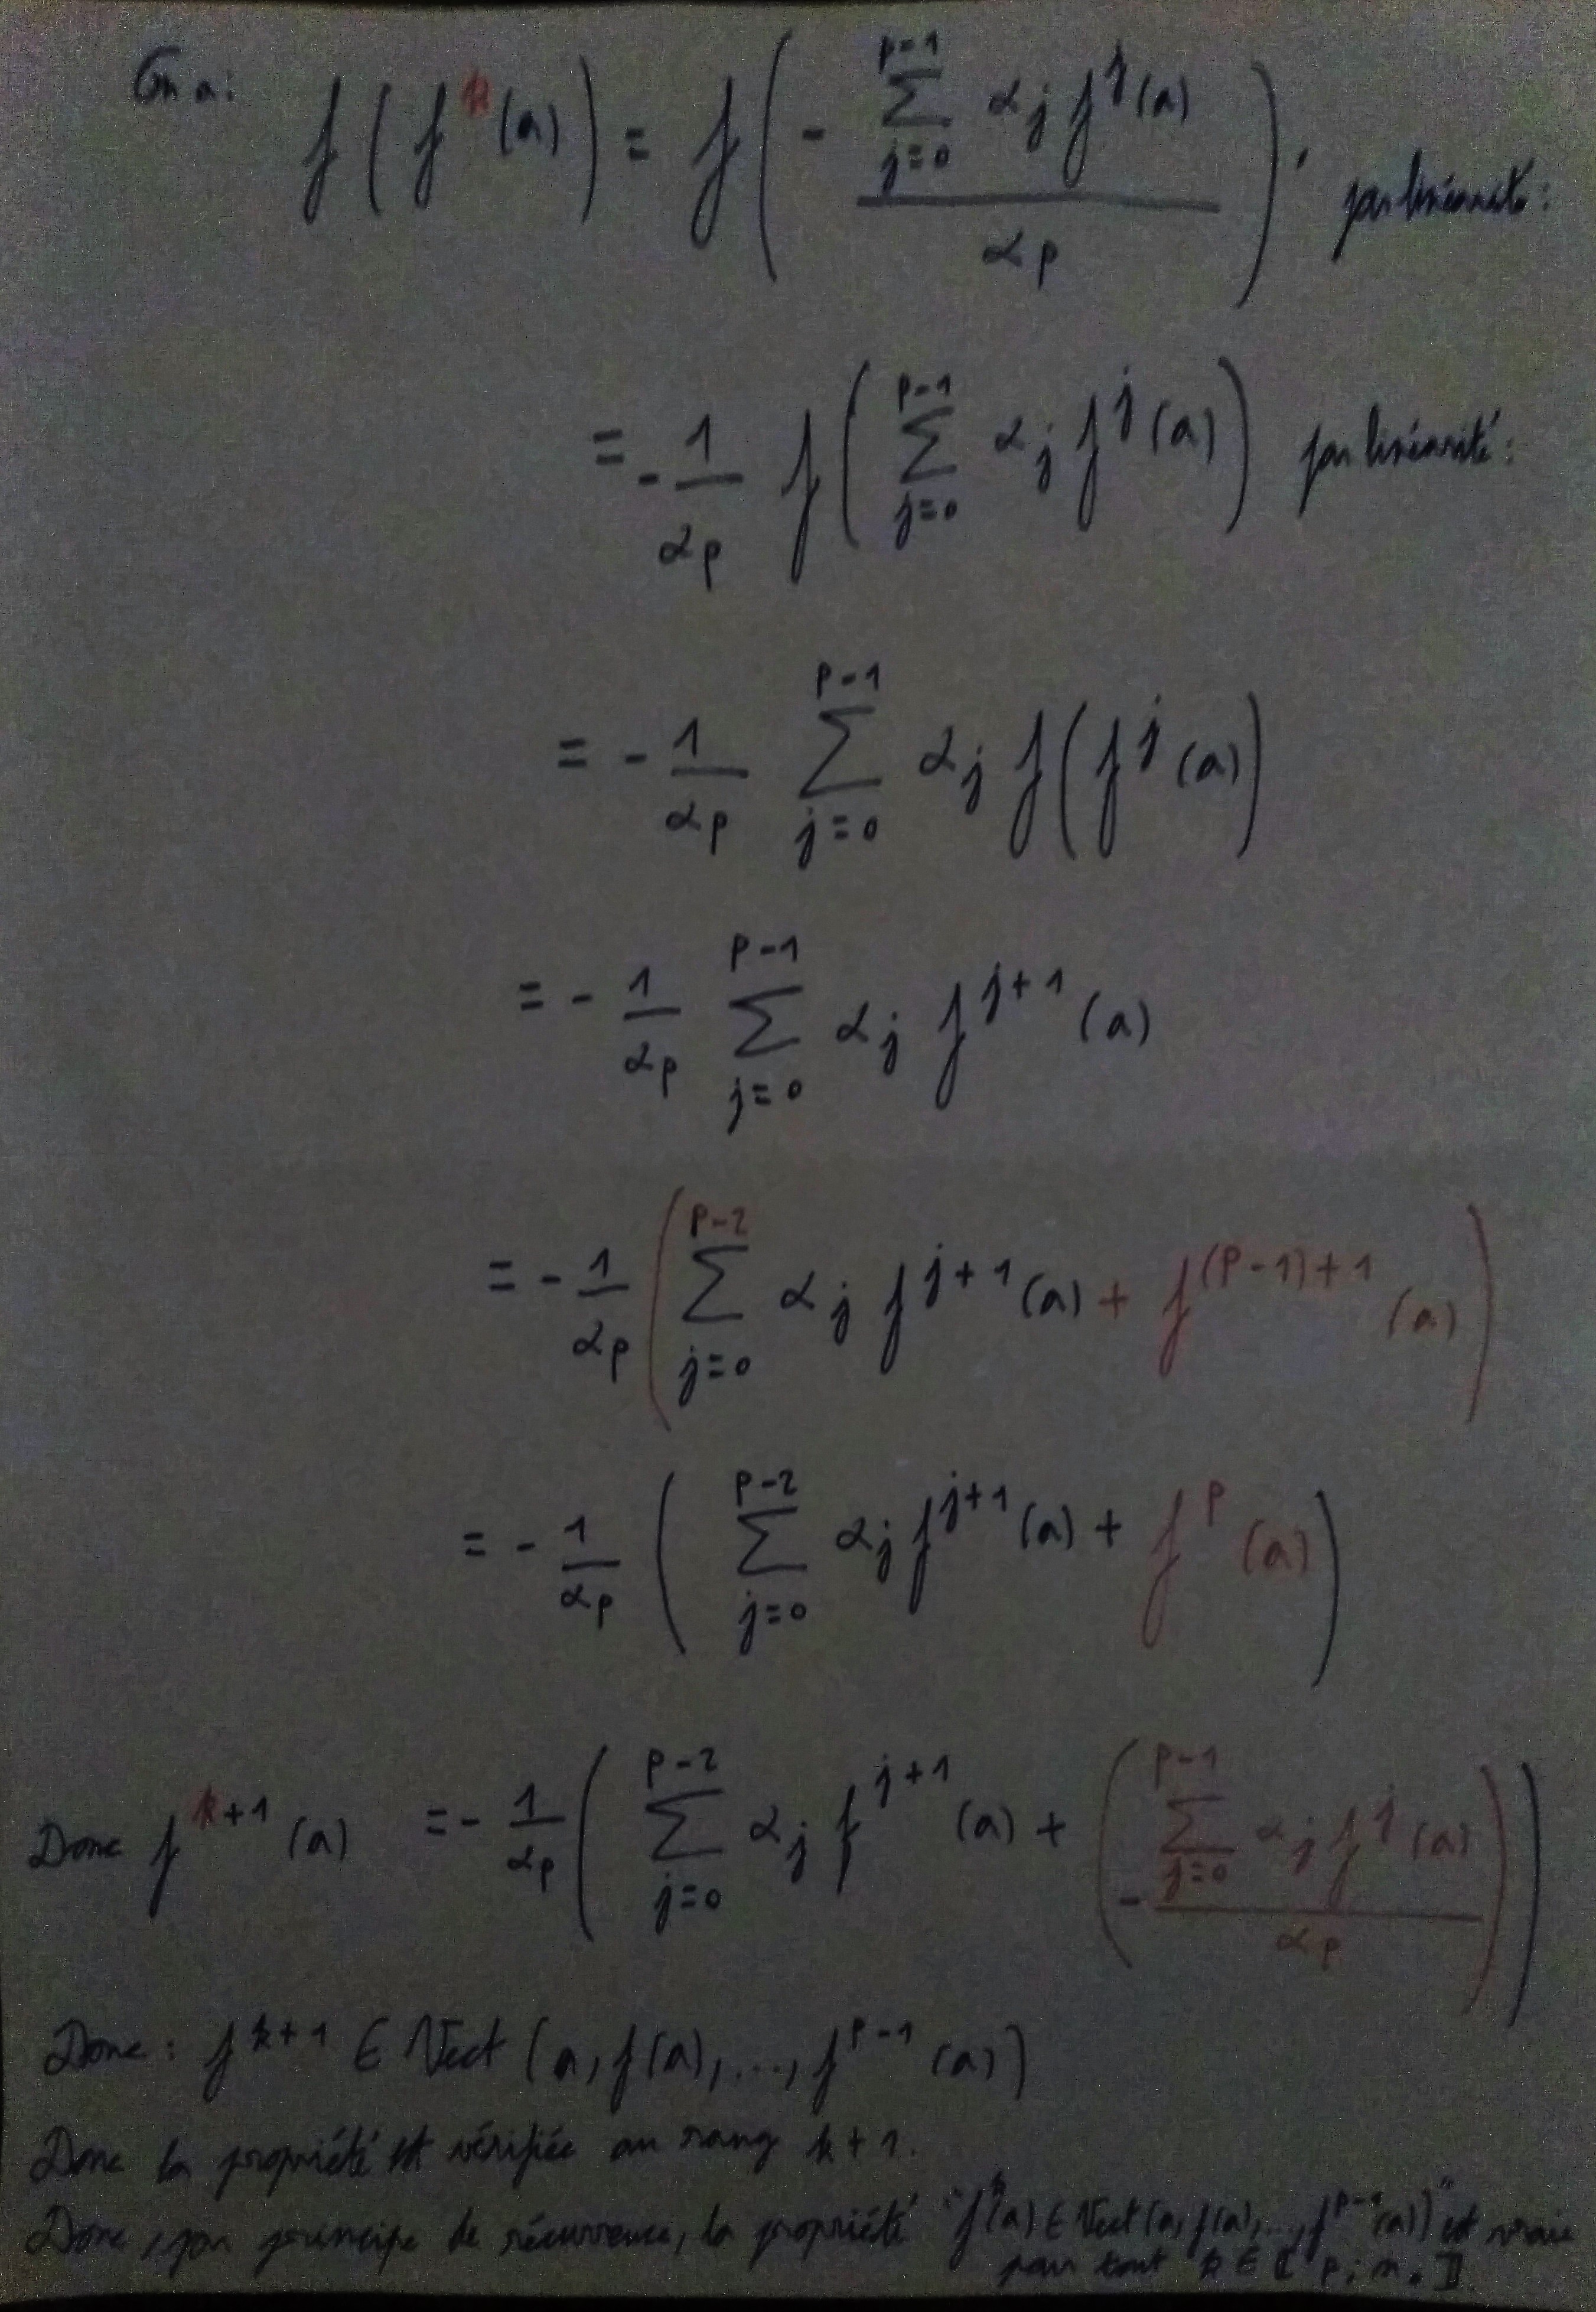 On a : f(f^k(a)) = f(- (∑_{j=0}^{p-1} α_j f^j(a)) / α_p), par linéarité :
= - 1/α_p f(∑_{j=0}^{p-1} α_j f^j(a)) par linéarité :
= - 1/α_p ∑_{j=0}^{p-1} α_j f(f^j(a))
= - 1/α_p ∑_{j=0}^{p-1} α_j f^{j+1}(a)
= - 1/α_p (∑_{j=0}^{p-2} α_j f^{j+1}(a) + f^{(p-1)+1}(a))
= - 1/α_p (∑_{j=0}^{p-2} α_j f^{j+1}(a) + f^p(a))
Donc f^{k+1}(a) = - 1/α_p (∑_{j=0}^{p-2} α_j f^{j+1}(a) + (- (∑_{j=0}^{p-1} α_j f^j(a)) / α_p))
Donc : f^{k+1} ∈ Vect(a, f(a), ..., f^{p-1}(a))
Donc la propriété est vérifiée au rang k+1.
Donc, par principe de récurrence, la propriété "f^k(a) ∈ Vect(a, f(a), ..., f^{p-1}(a))" est vraie
pour tout k ∈ ⟦ p ; n ⟧.